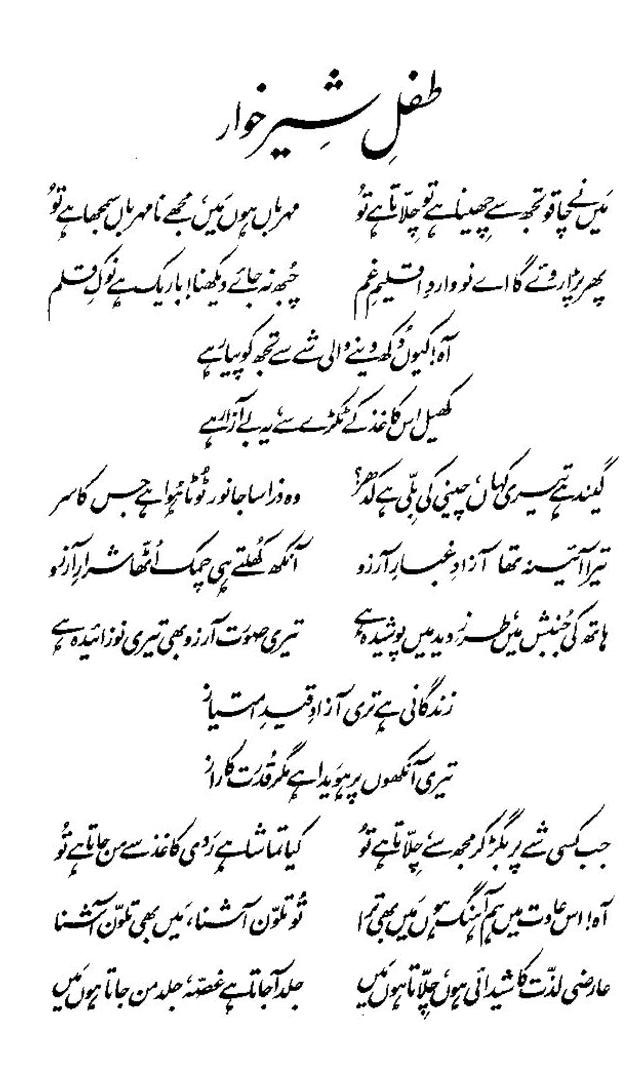 طفلِ شِیر خوار
مَیں نے چاقو تجھ سے چھینا ہے تو چِلّاتا ہے تُو مہرباں ہوں مَیں، مجھے نا مہرباں سمجھا ہے تُو
پھر پڑا روئے گا اے نوواردِ اقلیمِ غم چُبھ نہ جائے دیکھنا! باریک ہے نوکِ قلم
آہ! کیوں دُکھ دینے والی شے سے تجھ کو پیار ہے
کھیل اس کاغذ کے ٹکڑے سے، یہ بے آزار ہے
گیند ہے تیری کہاں، چینی کی بلّی ہے کدھر؟ وہ ذرا سا جانور ٹُوٹا ہُوا ہے جس کا سر
تیرا آئینہ تھا آزادِ غبارِ آرزو آنکھ کھُلتے ہی چمک اُٹھّا شرارِ آرزو
ہاتھ کی جُنبش میں، طرزِ دید میں پوشیدہ ہے تیری صورت آرزو بھی تیری نوزائیدہ ہے
زندگانی ہے تری آزادِ قیدِ امتیاز
تیری آنکھوں پر ہویدا ہے مگر قُدرت کا راز
جب کسی شے پر بگڑ کر مجھ سے، چِلّاتا ہے تُو کیا تماشا ہے رَدی کاغذ سے من جاتا ہے تُو
آہ! اس عادت میں ہم آہنگ ہوں مَیں بھی ترا تُو تلوّن آشنا، مَیں بھی تلوّن آشنا
عارضی لذّت کا شیدائی ہوں، چِلّاتا ہوں مَیں جلد آ جاتا ہے غصّہ، جلد من جاتا ہوں مَیں